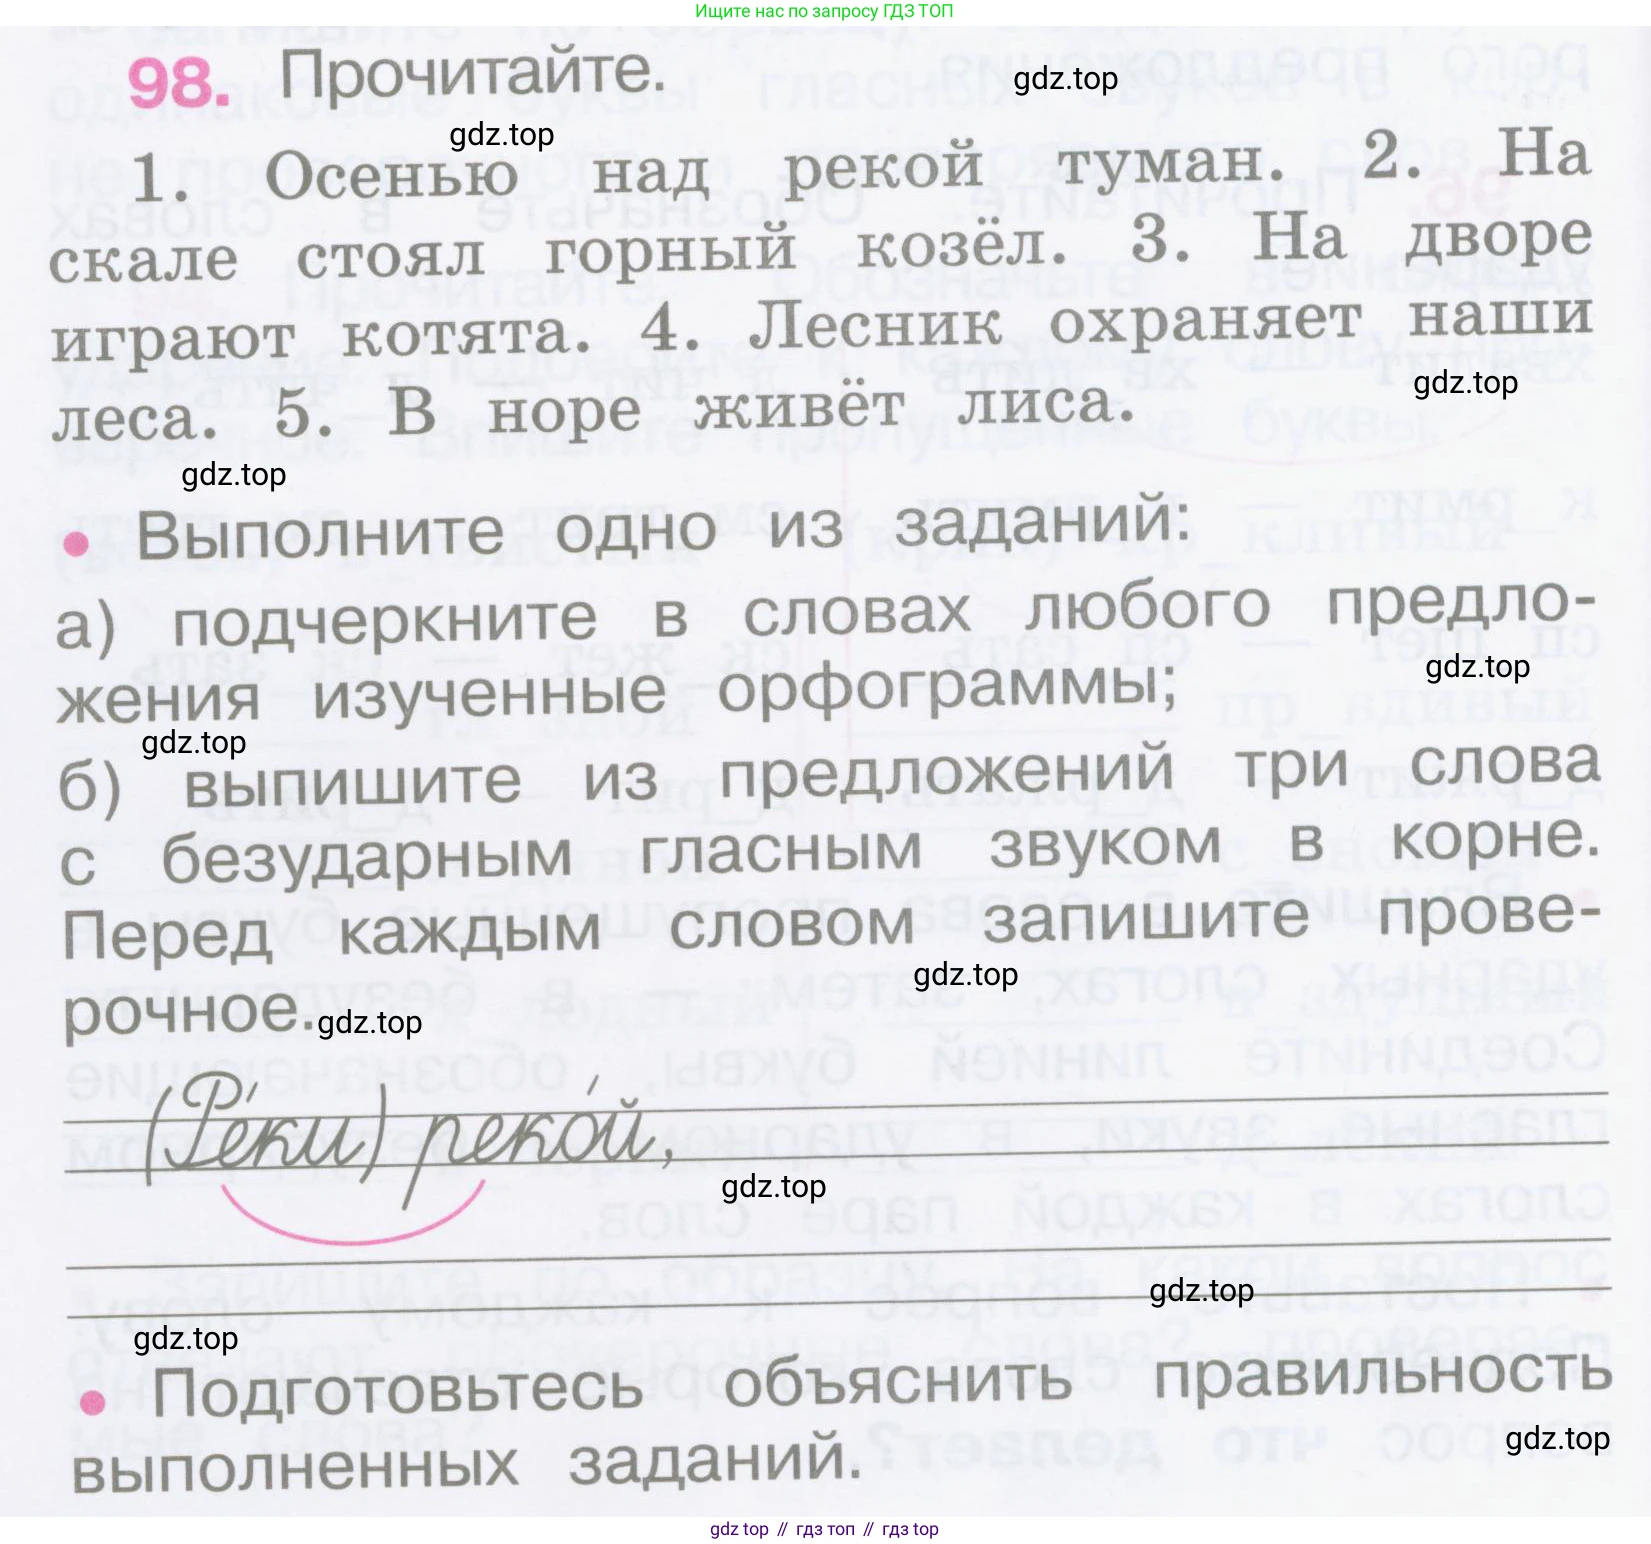 Ищите нас по запросу ГДЗ ТОП
98. Прочитайте.
gdz.top
gdz.top
1. Осенью над рекой туман. 2. На
скале стоял горный козёл. 3. На дворе
играют котята. 4. Лесник охраняет наши
леса. 5. В норе живёт лиса.
gdz.top
gdz.top
• Выполните одно из заданий:
а) подчеркните в словах любого предло-
жения изученные орфограммы;
gdz.top
gdz.top
б) выпишите из предложений три слова
с безударным гласным звуком в корне.
Перед каждым словом запишите прове-
gdz.top
рочное.
gdz.top
(Ре́ки) реко́й,
gdz.top
gdz.top
gdz.top
• Подготовьтесь объяснить правильность
выполненных заданий.
gdz.top
gdz top // гдз топ // гдз top